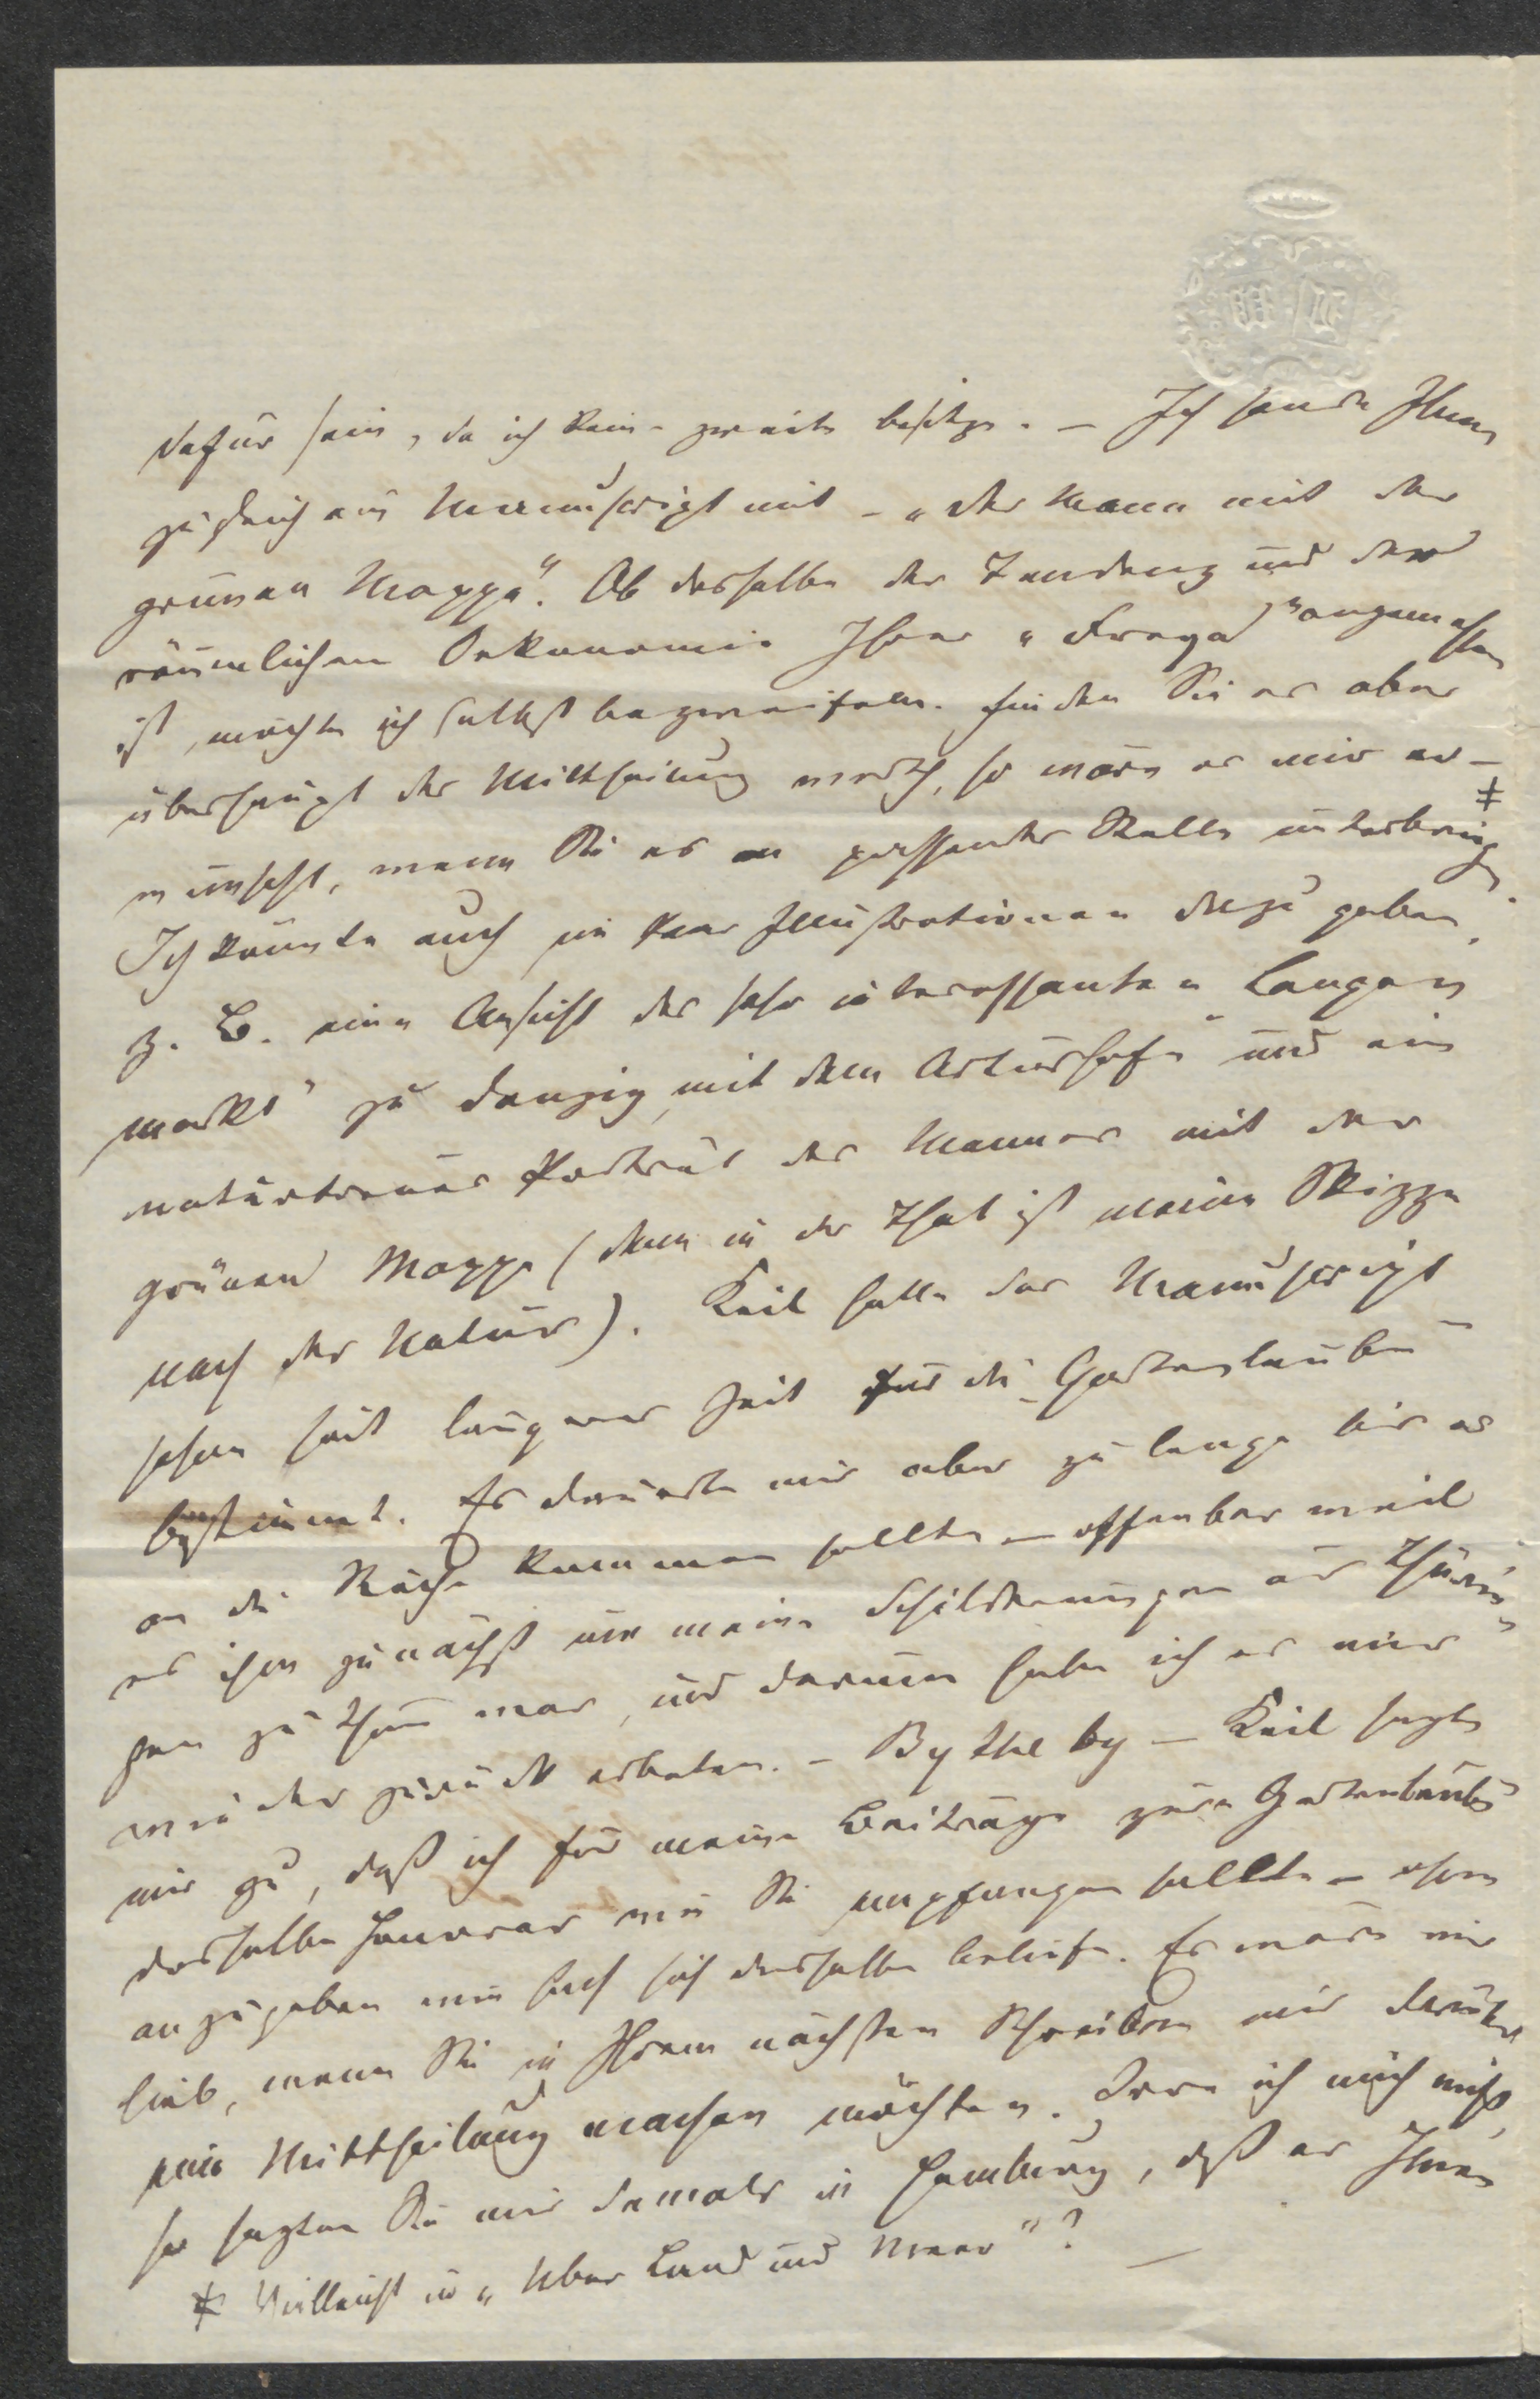 dafür sein, da ich keine zweite besitze. – Ich sende Ihnen
zugleich ein Manuscript mit – „der Mann mit der
grünen Mappe“. Ob dasselbe der Tendenz und der
räumlichen Oekonomie Ihrer „Freya“ angemessen
ist, möchte ich selbst bezweifeln. Finden Sie es aber
überhaupt der Mittheilung werth, so wäre es mir er-
wünscht, wenn Sie es an passender Stelle unterbringen ‡.
Ich könnte auch ein Paar Illustrationen dazu geben,
z. B. eine Ansicht des sehr interessanten „Langen
markts“ zu Danzig mit dem „Artushofe“ und ein
naturtreues Porträt des Mannes mit der
grünen Mappe (denn in der That ist meine Skizze
nach der Natur). Keil hatte das Manuscript
schon seit langer Zeit für die „Gartenlaube“
bestimmt. Es dauerte mir aber zu lange bis es
an die Reihe kommen sollte – offenbar weil
es ihm zunächst um meine Schilderungen aus Thürin-
gen zu thun war, und darum habe ich es mir
wieder zurück erbeten. – By the by – Keil sagte
mir zu, daß ich für meine Beiträge zur Gartenlaube
dasselbe Honorar wie Sie empfangen sollte – ohne
anzugeben wie hoch sich dasselbe beliefe. Es wäre mir
lieb, wenn Sie in Ihrem nächsten Schreiben mir darüber
eine Mittheilung machen möchten. Irre ich mich nicht,
so sagten Sie mir damals in Hamburg, daß er Ihnen
‡ Vielleicht in „Über Land und Meer“? –